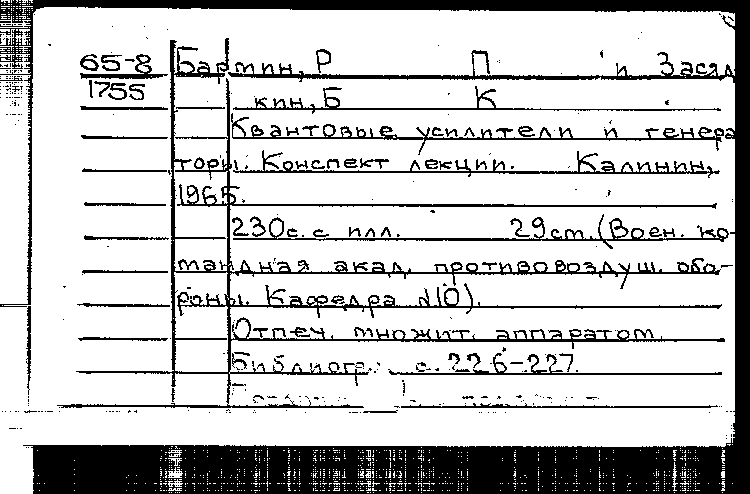 65-8 Бармин, Р П и Засяд
1755 кин, Б К
Квантовые усилители и генера
торы. Конспект лекции. Калинин,
1965.
230с. с илл. 29см. (Воен. ко-
мандная акад. противовоздуш. обо-
роны. Кафедра №10).
Отпеч. множит. аппаратом.
Библиогр.: с. 226-227.